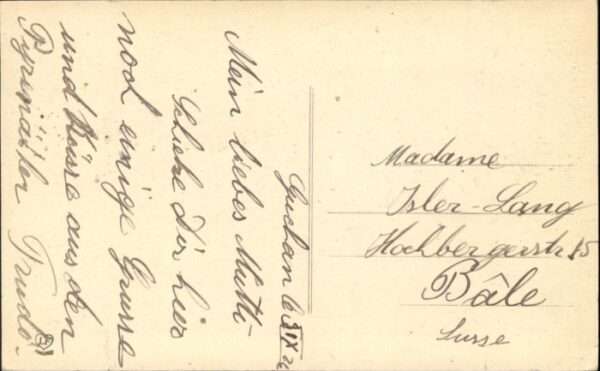 Mein liebes Mutti-
Schicke Dir hier
noch einige Grüsse
und Küsse aus den
Pyrenäen Trudi
Madame
Isler-Lang
Hochbergerstr 15
Bâle
Suisse